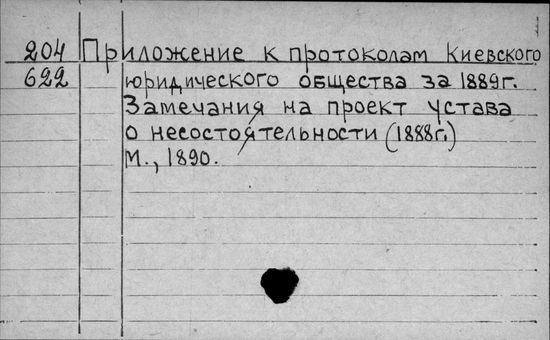 204 Приложение к протоколам Киевского
622 юридического общества за 1889г.
Замечания на проект устава
о несостоятельности (1888г.)
М., 1890.